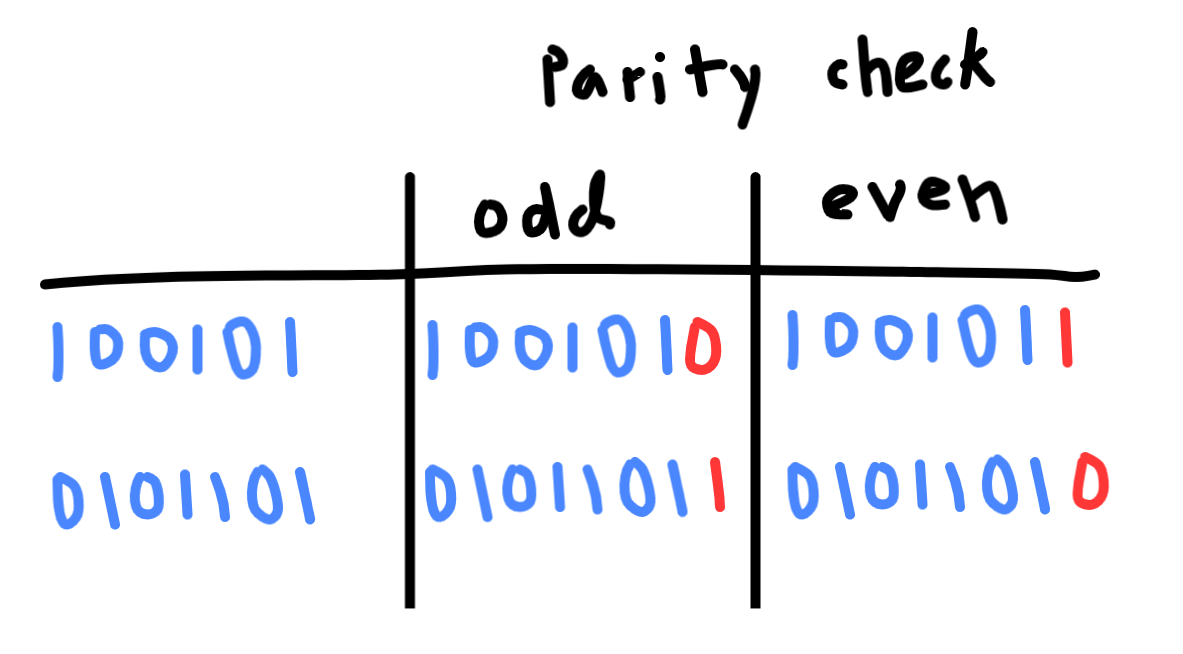 Parity check
odd even
100101 1001010 1001011
01011101 010110101